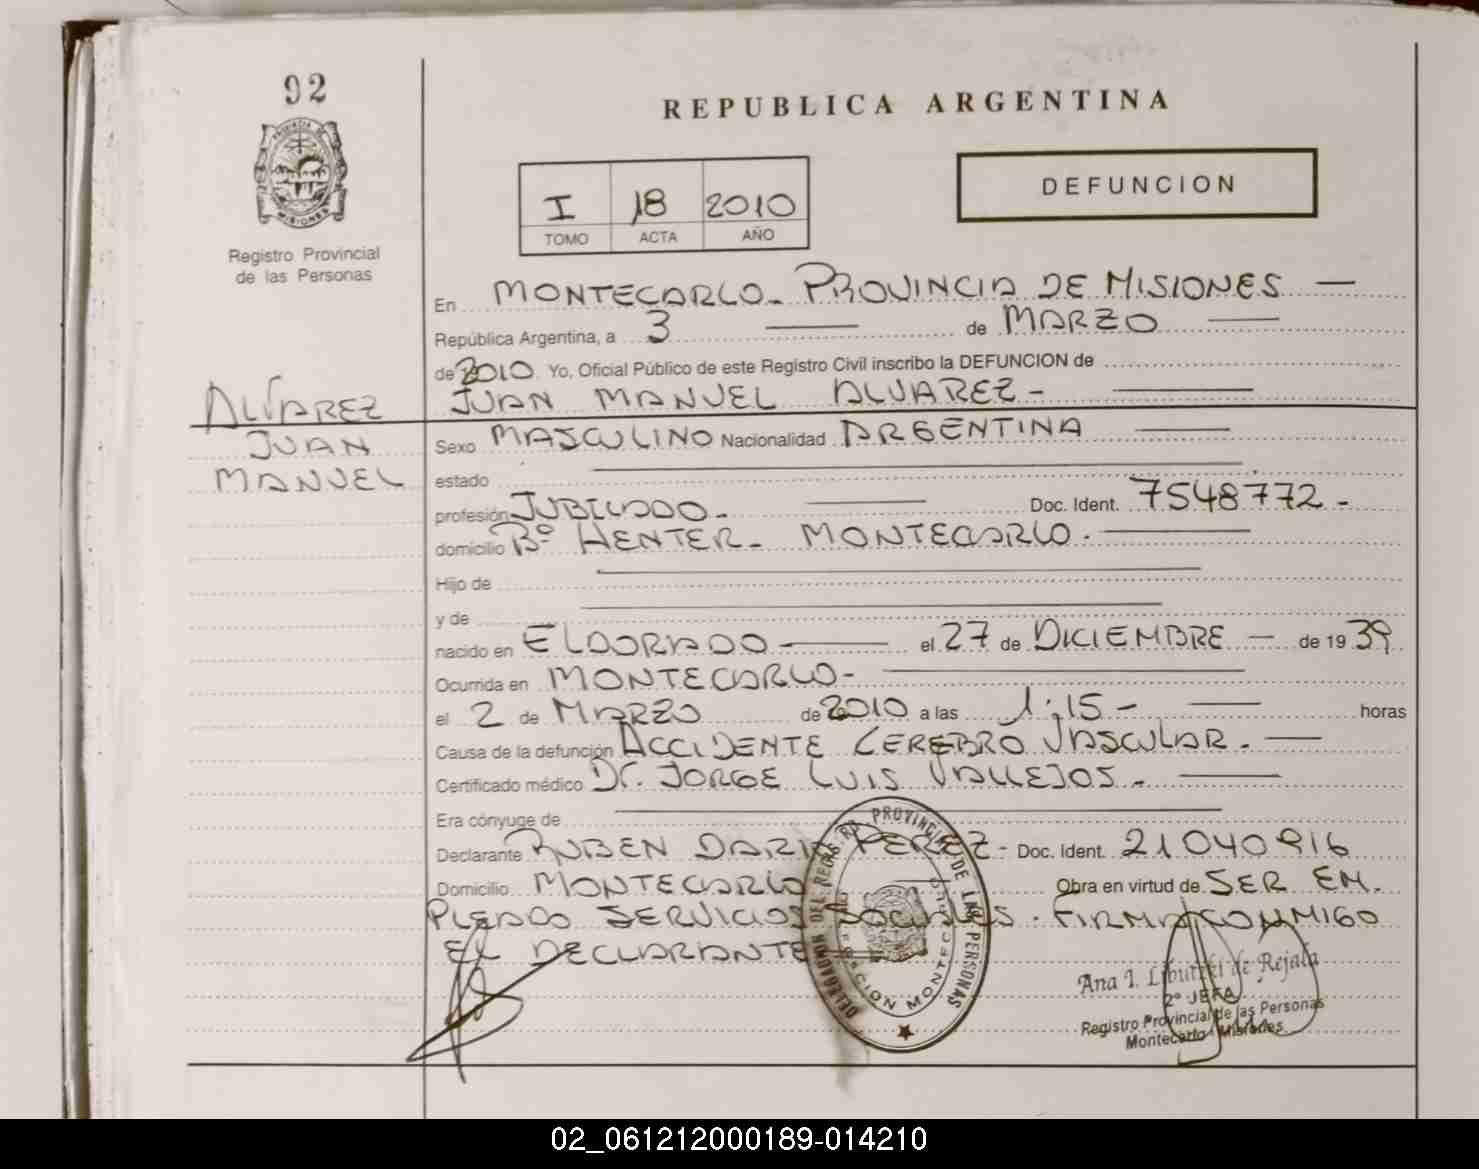 92
PROVINCIA DE
MISIONES
Registro Provincial
de las Personas
REPUBLICA ARGENTINA
I 18 2010
TOMO ACTA AÑO
DEFUNCION
En MONTECARLO- PROVINCIA DE MISIONES —
República Argentina, a 3 — de MARZO —
de 2010 Yo, Oficial Público de este Registro Civil inscribo la DEFUNCION de
JUAN MANUEL ALVAREZ- —
ALVAREZ
JUAN
MANUEL
Sexo MASCULINO Nacionalidad ARGENTINA —
estado —
profesión JUBILADO- — Doc. Ident. 7548772-
domicilio Bº HENTER- MONTECARLO. —
Hijo de —
y de —
nacido en ELDORADO — el 27 de DICIEMBRE — de 19 39
Ocurrida en MONTECARLO- —
el 2 de MARZO de 2010 a las 1:15- — horas
Causa de la defunción ACCIDENTE CEREBRO VASCULAR. —
Certificado médico Dr. JORGE LUIS VALLEJOS- —
Era cónyuge de —
Declarante RUBEN DARIO PEREZ- Doc. Ident. 21040916
Domicilio MONTECARLO — Obra en virtud de SER EM-
PLEADO SERVICIOS SOCIALES. FIRMA CONMIGO
EL DECLARANTE —
DELEGACION DEL REGISTRO PROVINCIAL DE LAS PERSONAS
DELEGACION MONTECARLO
Ana I. de Rejala
2º JEFA
Registro Provincial de las Personas
Montecarlo - Misiones
02_061212000189-014210